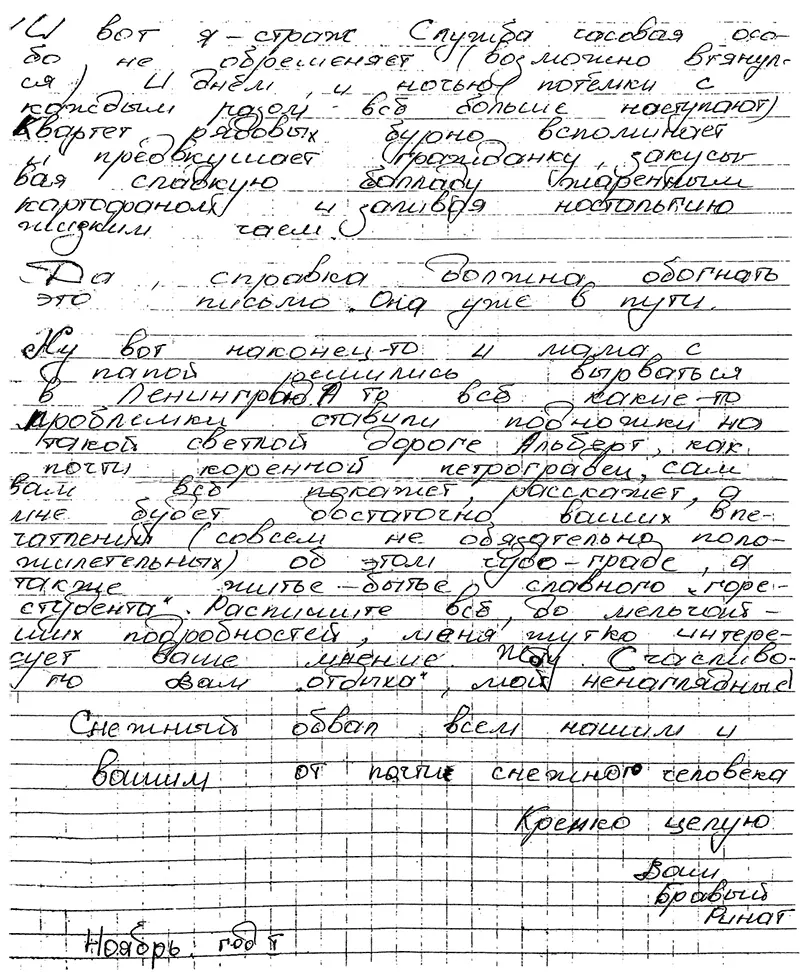 И вот я – страж Служба часовая осо-
бо не обременяет (возможно втянул-
ся) И днём, и ночью (потёмки с
каждым разом - всё больше наступают)
Квартет рядовых бурно вспоминает
и предвкушает гражданку, закусы-
вая сладкую балладу жаренным
картофаном и запивая ностальгию
жидким чаем.
Да, справка должна обогнать
это письмо. Она уже в пути.
Ну вот наконец-то и мама с
папой решились вырваться
в Ленинград А то всё какие-то
проблемки ставили подножки на
такой светлой дороге Альберт, как
почти коренной петроградец, сам
вам всё покажет, расскажет, а
мне будет достаточно ваших впе-
чатлений (совсем не обязательно поло-
жилетельных) об этом чудо-граде, а
также житье-бытье славного „горе-
студента“. Распишите всё, до мельчай-
ших подробностей, меня жутко интере-
сует ваше мнение. Жду. Счасливо-
го вам „отдыха“, мои ненаглядные
Снежный обвал всем нашим и
вашим от почти снежного человека
Крепко целую
Ваш
Бравый
Ринат
Ноябрь. год I